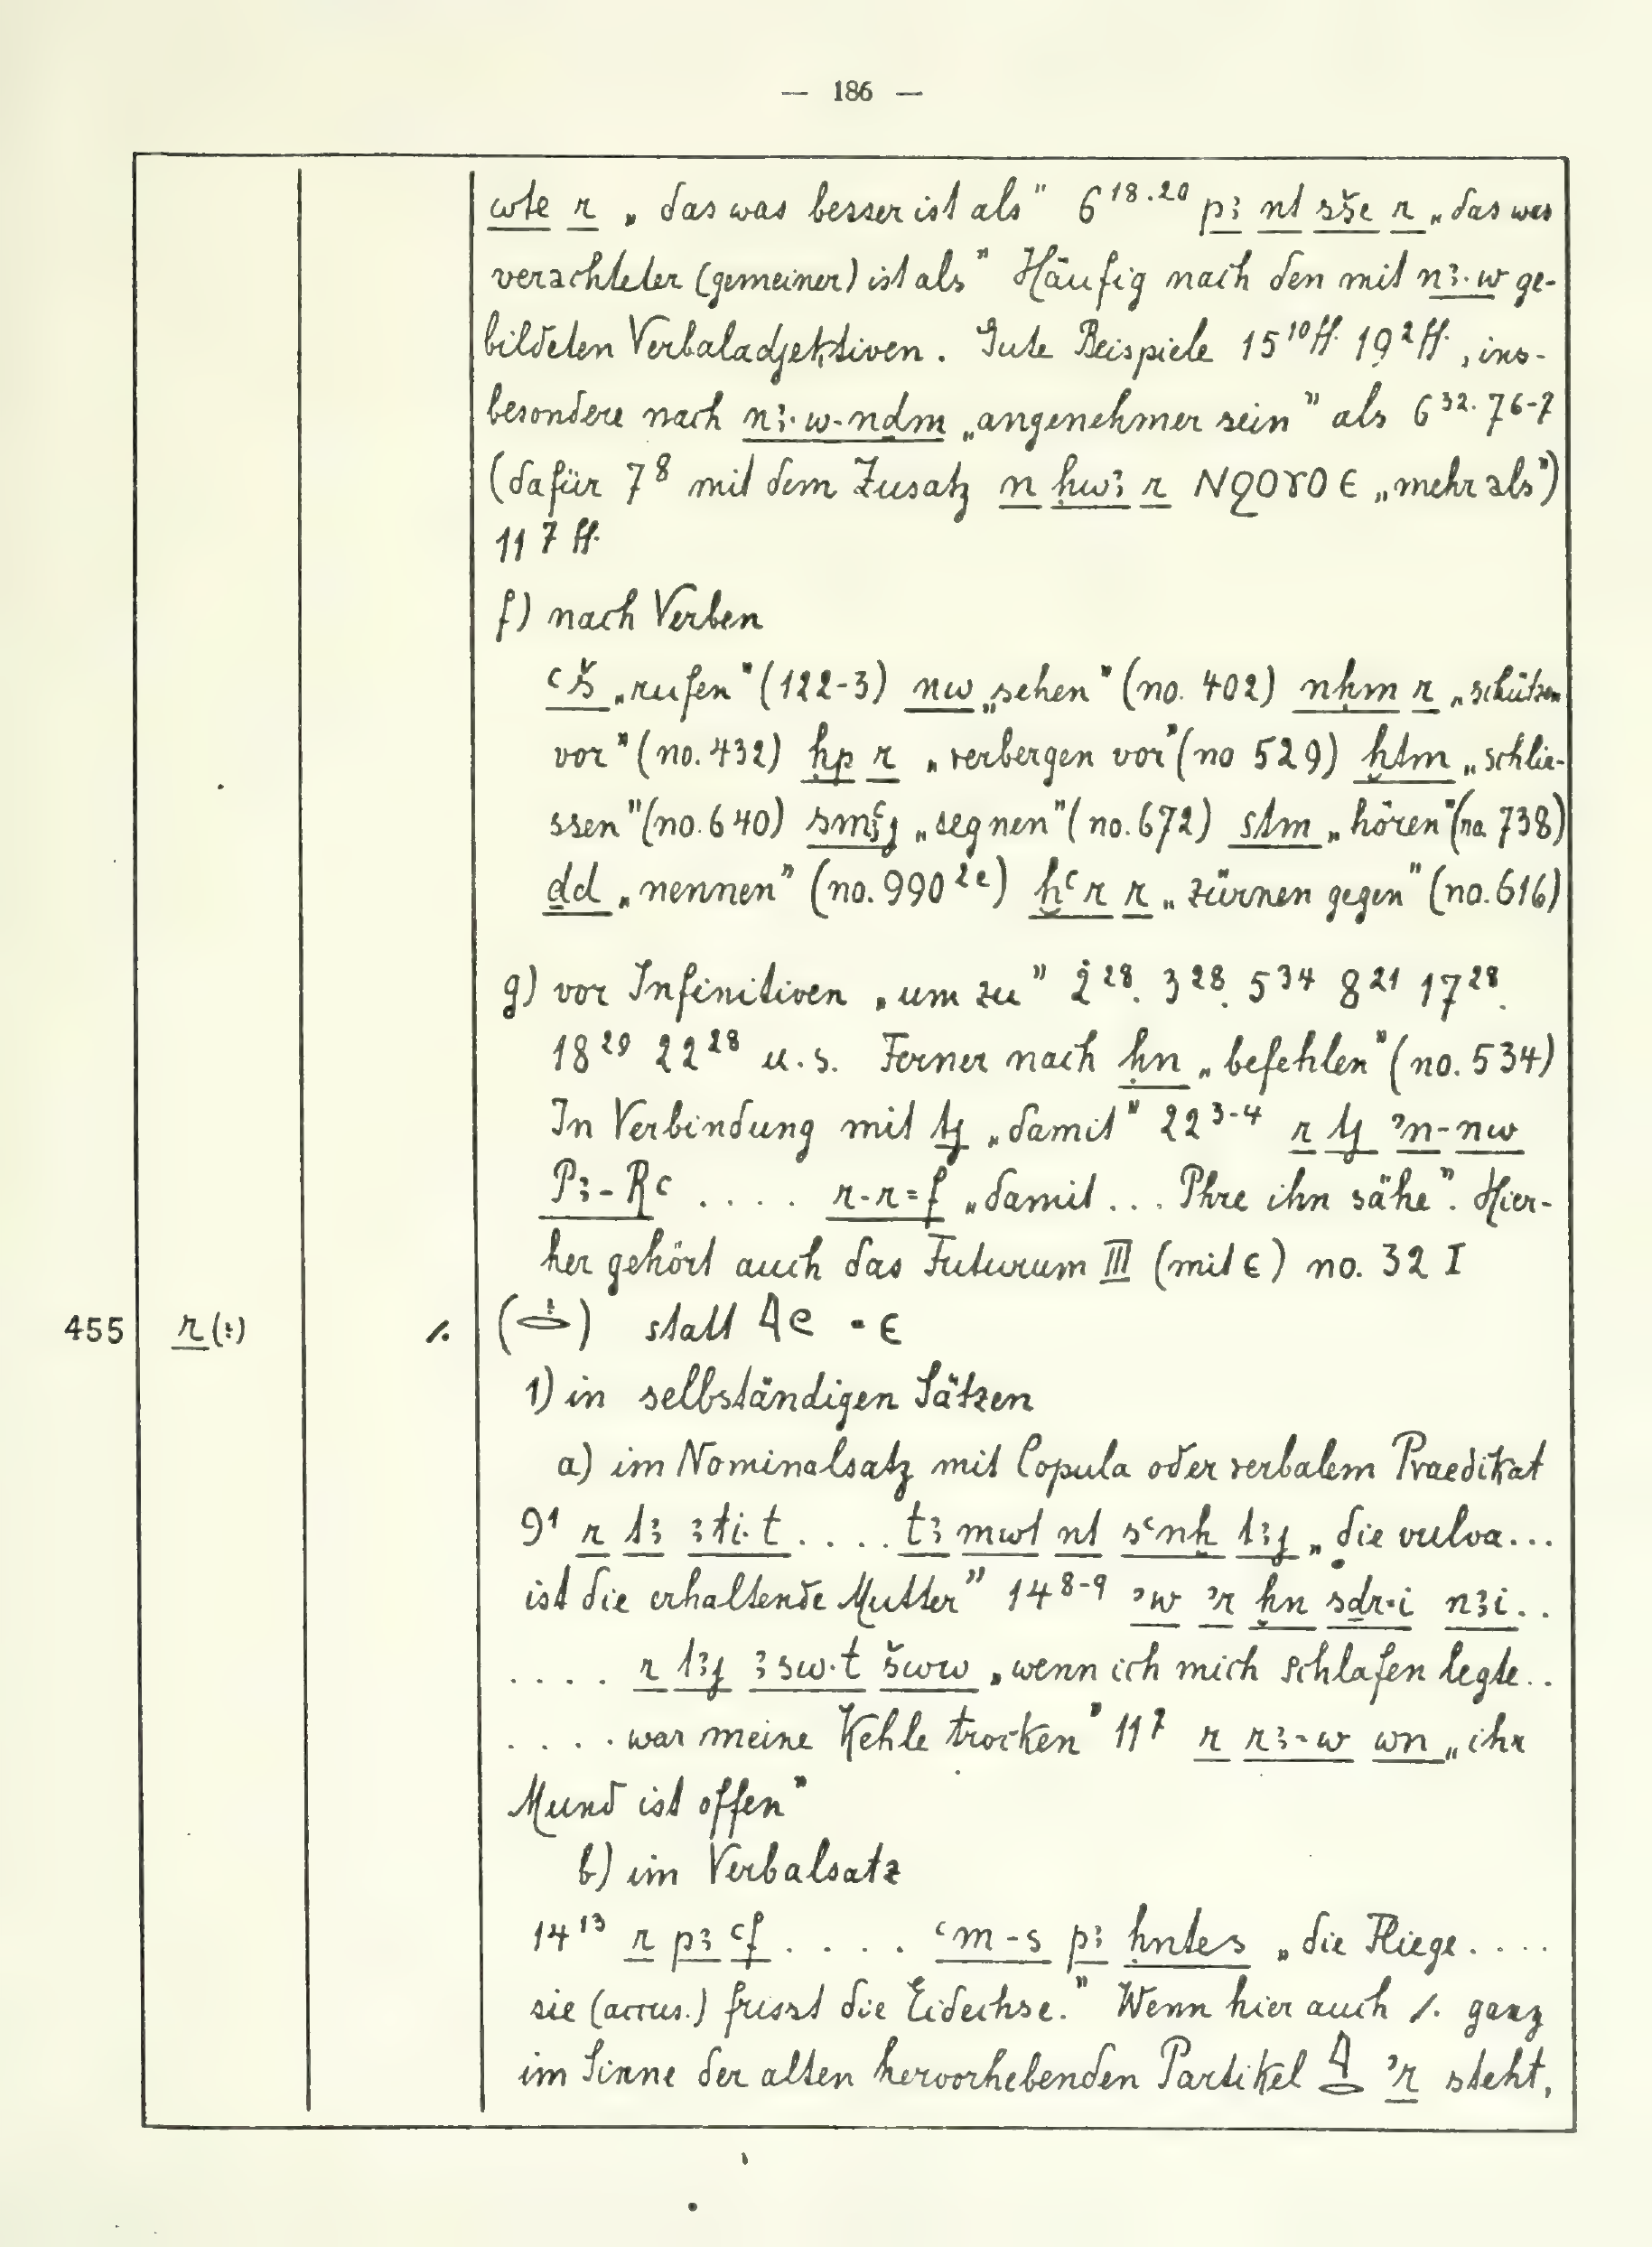 — 186 —
wte r „das was besser ist als" 6¹⁸·²⁰ pꜣ nt sše r „das was
verachteter (gemeiner) ist als" Häufig nach den mit nꜣ·w ge-
bildeten Verbaladjektiven. Gute Beispiele 15¹⁰ff. 19²ff., ins-
besondere nach nꜣ·w-nḏm „angenehmer sein" als 6³²· 7⁶⁻⁷
(dafür 7⁸ mit dem Zusatz n ḥwꜣ r ⲚϨⲞⲨⲞ Ⲉ „mehr als")
11⁷ff.
f) nach Verben
ꜥš „rufen" (122-3) nw „sehen" (no. 402) nḥm r „schützen
vor" (no. 432) ḥp r „verbergen vor" (no 529) ḫtm „schlie-
ssen" (no. 640) smꜣꜥj „segnen" (no. 672) stm „hören" (no. 738)
ḏd „nennen" (no. 990²ᵉ) ḫꜥr r „zürnen gegen" (no. 616)
g) vor Infinitiven „um zu" 2²⁸. 3²⁸. 5³⁴ 8²¹ 17²⁸.
18²⁹ 22²⁸ u. s. Ferner nach ḥn „befehlen" (no. 534)
In Verbindung mit tj „damit" 22³⁻⁴ r tj ꜣn-nw
Pꜣ-Rꜥ .... r-r=f „damit ... Phre ihn sähe". Hier-
her gehört auch das Futurum III (mit ⲉ) no. 32 I
455 r(:) /. (𓂋) statt 𓇋𓏲 · ⲉ
1) in selbständigen Sätzen
a) im Nominalsatz mit Copula oder verbalem Praedikat
9¹ r tꜣ ꜣti·t .... tꜣ mwt nt sꜥnḫ tꜣj „die vulva...
ist die erhaltende Mutter" 14⁸⁻⁹ ʾw ʾr ḫn sḏr·i nꜣi..
.... r tꜣj ꜣsw·t šww „wenn ich mich schlafen legte..
.... war meine Kehle trocken" 11⁷ r rꜣ-w wn „ihr
Mund ist offen"
b) im Verbalsatz
14¹³ r pꜣ ꜥf .... ꜥm-s pꜣ hntes „die Fliege ....
sie (accus.) frisst die Eidechse." Wenn hier auch /. ganz
im Sinne der alten hervorhebenden Partikel 𓇋𓂋 ʾr steht,